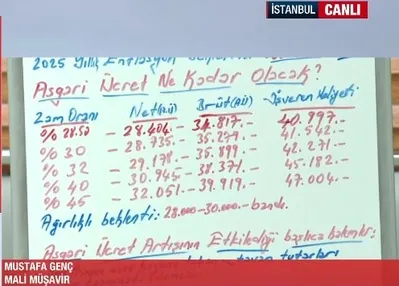 İSTANBUL CANLI
2025 Yıllık Enflasyon
Asgari Ücret Ne Kadar Olacak?
Zam Oranı Net(₺) Brüt(₺) İşveren Maliyeti
% 28.50 - 28.404.- 34.817.- 40.997.-
% 30 - 28.735.- 35.299.- 41.542.-
% 32 - 29.178.- 35.899.- 42.271.-
% 40 - 30.945.- 38.371.- 45.182.-
% 45 - 32.051.- 39.919.- 47.004.-
Ağırlıklı beklenti: 28.000-30.000.- bandı.
Asgari Ücret Artışının Etkilediği başlıca kalemler:
tutarları
MUSTAFA GENÇ
MALİ MÜŞAVİR